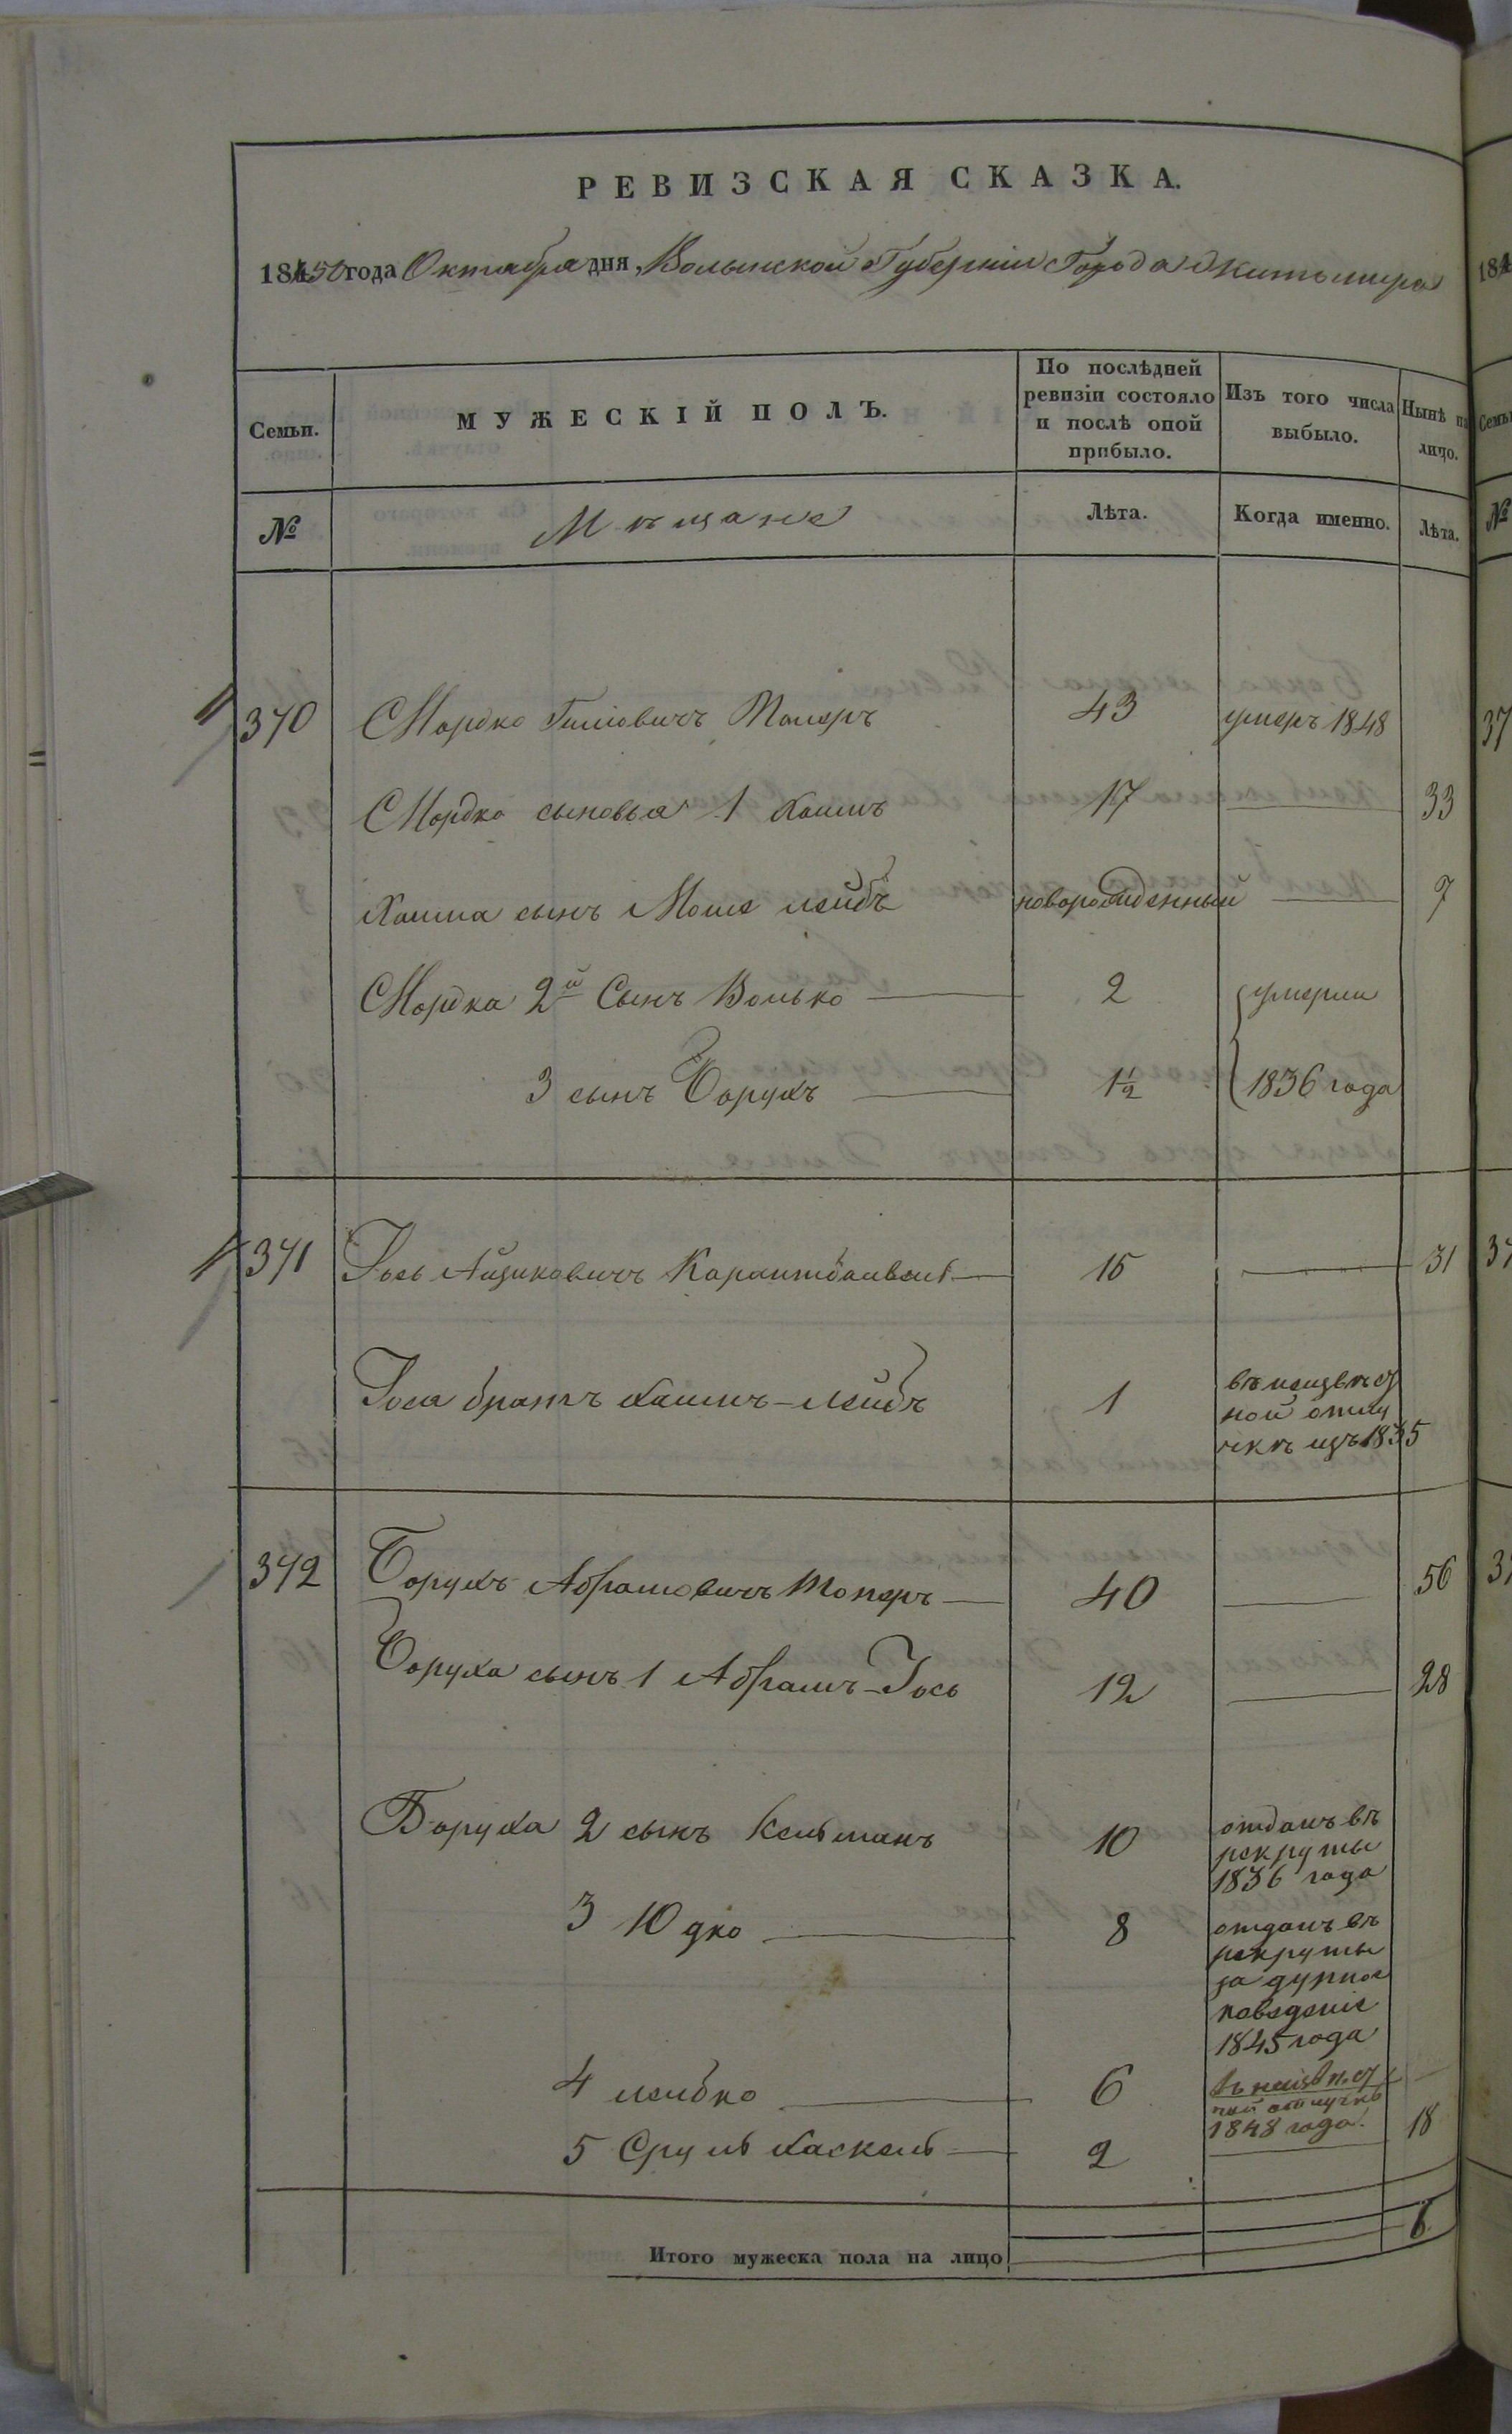 РЕВИЗСКАЯ СКАЗКА.
1850 года Октября дня, Волынской Губерніи Города Житомира
Семьи.
МУЖЕСКІЙ ПОЛЪ.
По послѣдней ревизіи состояло и послѣ оной прибыло.
Изъ того числа выбыло.
Нынѣ на лицо.
№
Мѣщане
Лѣта.
Когда именно.
Лѣта.
370 Мордко Топеръ 43 умеръ 1848
Мордко сыновья 1 Хаимъ 17 33
Хаима сынъ Моше Лейбъ новорожденный 7
Мордка 2й Сынъ Волько 2 умерли
3 сынъ Борухъ 1½ 1836 года
371 Іось Айзиковичъ 15 31
Іося братъ Хаимъ-Лейбъ 1 въ неизвѣст
ной отлу
чкѣ изъ 1835
372 Борухъ Абрамовичъ Топеръ 40 56
Боруха сынъ 1 Абрамъ-Іось 12 28
Боруха 2 сынъ Кельманъ 10 отданъ въ
рекруты
1836 года
3 Юдко 8 отданъ въ
рекруты
за дурное
поведеніе
1845 года
4 Лейбко 6 въ неизвѣст
ной отлучкѣ
1848 года.
5 Сруль Хаскель 2 18
Итого мужеска пола на лицо 6